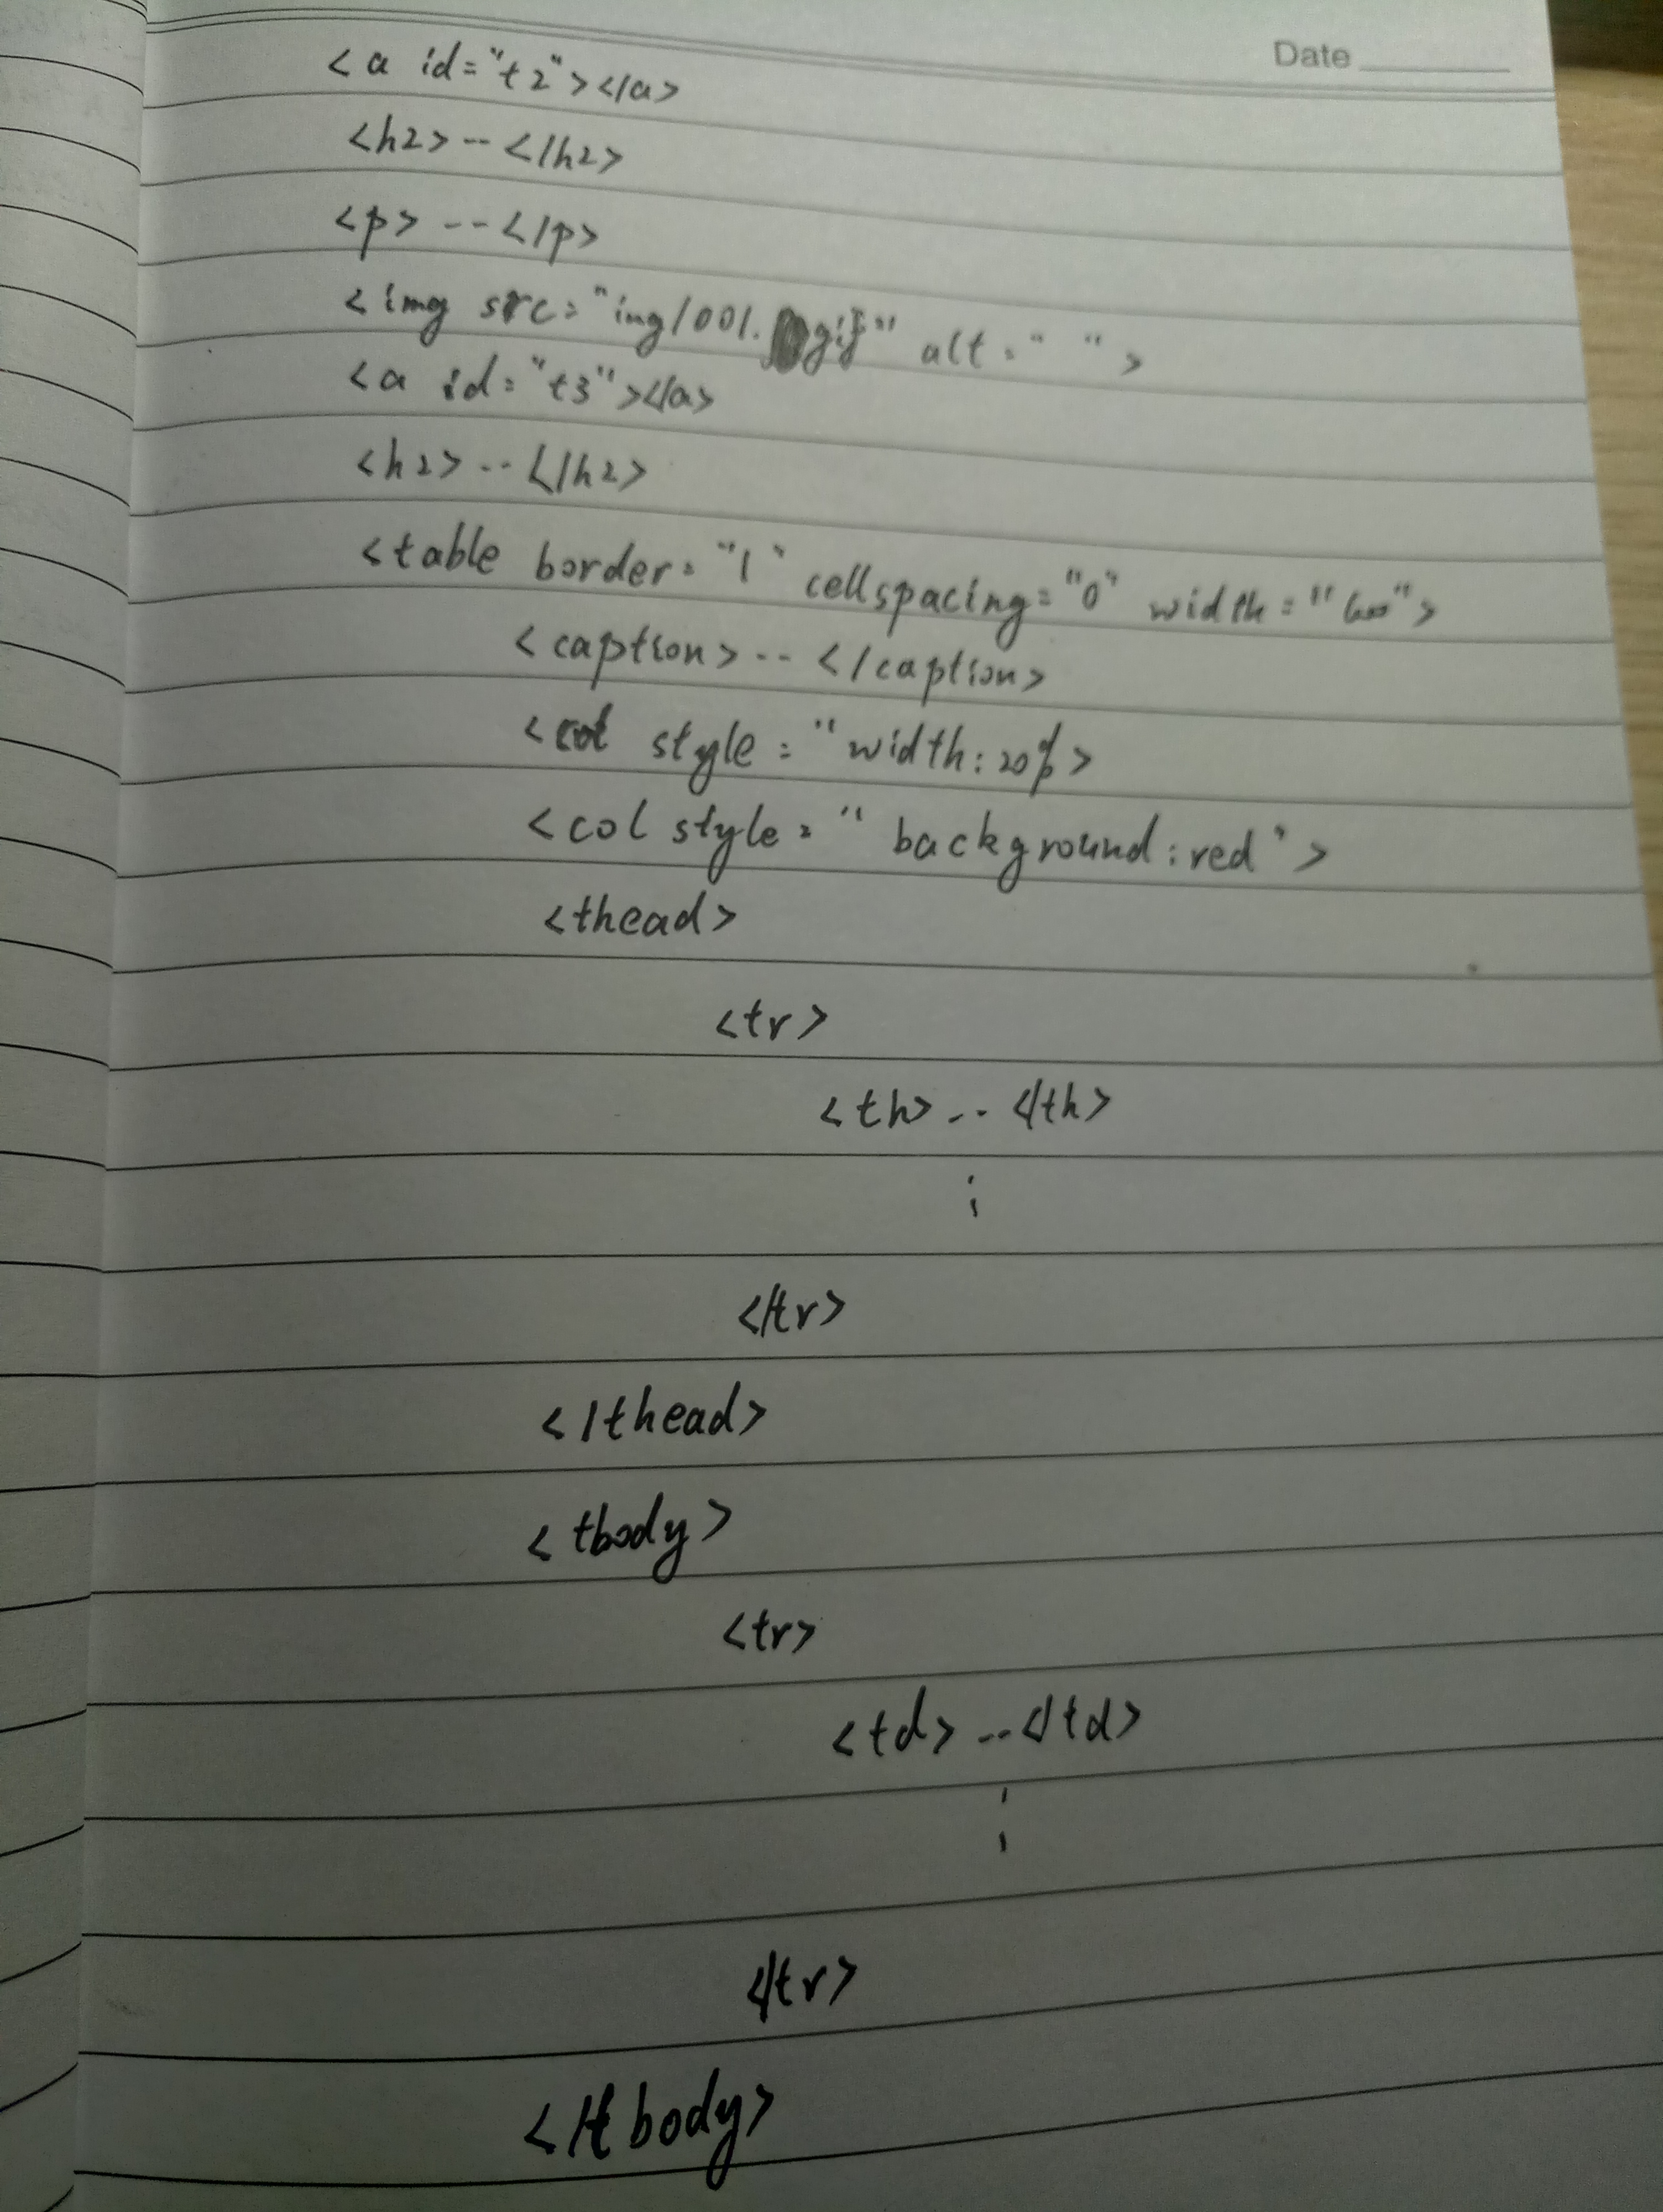 Date
<a id="t2"></a>
<h2>--</h2>
<p>--</p>
<img src="img/001.gif" alt=" ">
<a id="t3"></a>
<h2>--</h2>
<table border="1" cellspacing="0" width="600">
<caption>--</caption>
<col style="width:20%>
<col style="background:red">
<thead>
<tr>
<th>--</th>
</tr>
</thead>
<tbody>
<tr>
<td>--</td>
</tr>
</tbody>